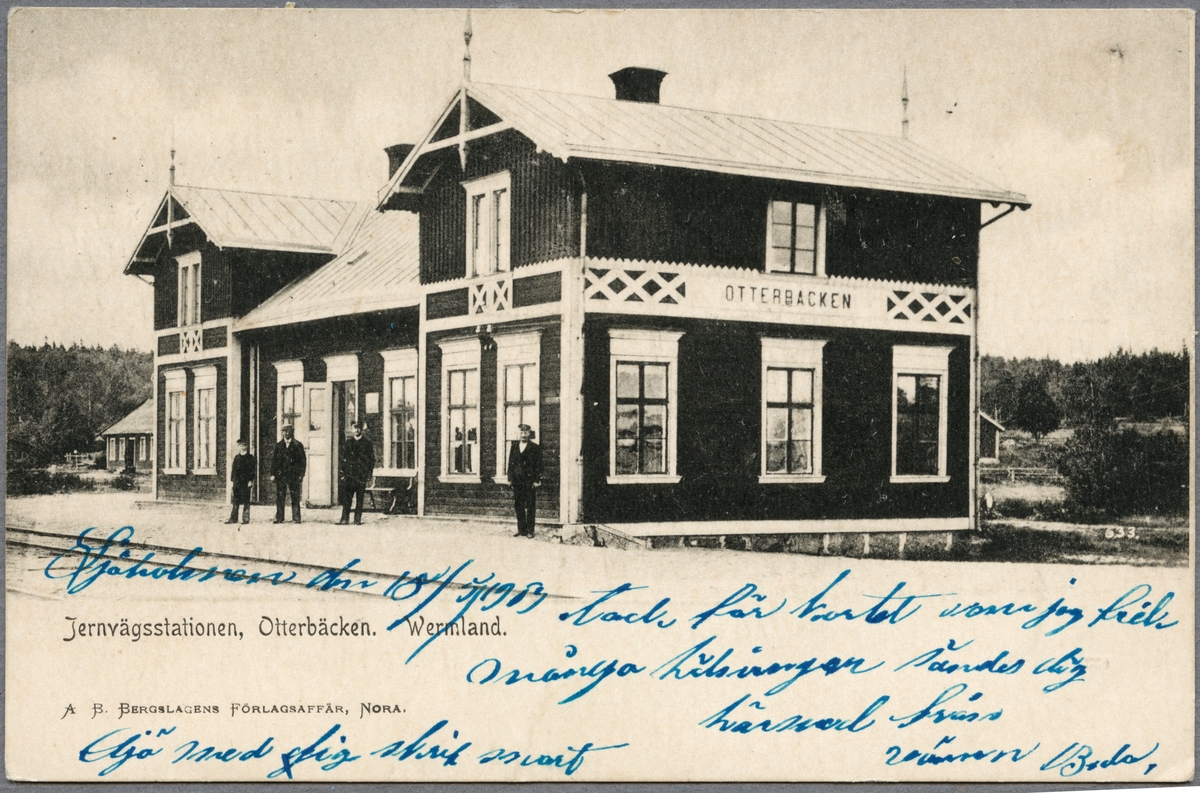 OTTERBÄCKEN
633.
den 18/5 1903 tack för kortet som jag
Jernvägsstationen, Otterbäcken. Wermland.
många hälsningar sändes dig
A B. BERGSLAGENS FÖRLAGSAFFÄR, NORA.
härmed från
Ajö med dig skrif snart
vännen Beda,